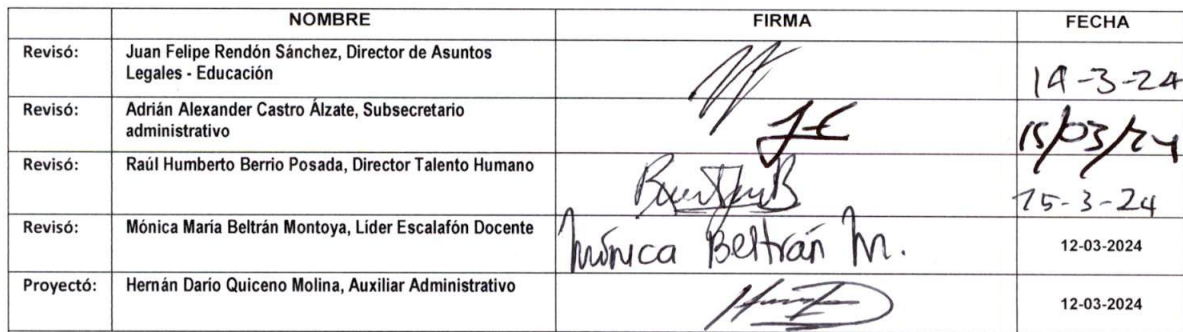 NOMBRE FIRMA FECHA
Revisó: Juan Felipe Rendón Sánchez, Director de Asuntos
Legales - Educación
14-3-24
Revisó: Adrián Alexander Castro Álzate, Subsecretario
administrativo
15/03/24
Revisó: Raúl Humberto Berrio Posada, Director Talento Humano
15-3-24
Revisó: Mónica María Beltrán Montoya, Líder Escalafón Docente
Mónica Beltrán M.
12-03-2024
Proyectó: Hernán Darío Quiceno Molina, Auxiliar Administrativo
12-03-2024